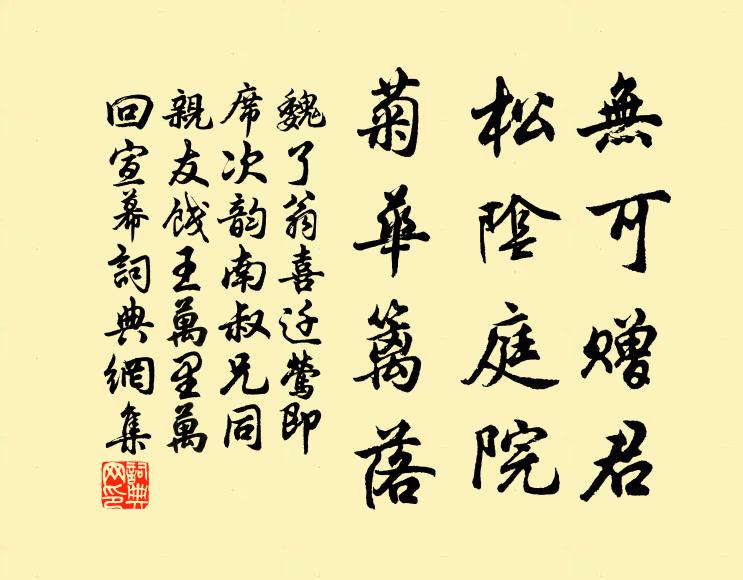 無可贈君
松陰庭院
菊華籬落
魏了翁喜迁鶯即
席次韵南叔兄同
親友餞王萬里萬
回宣幕詞典網集
詞典網印